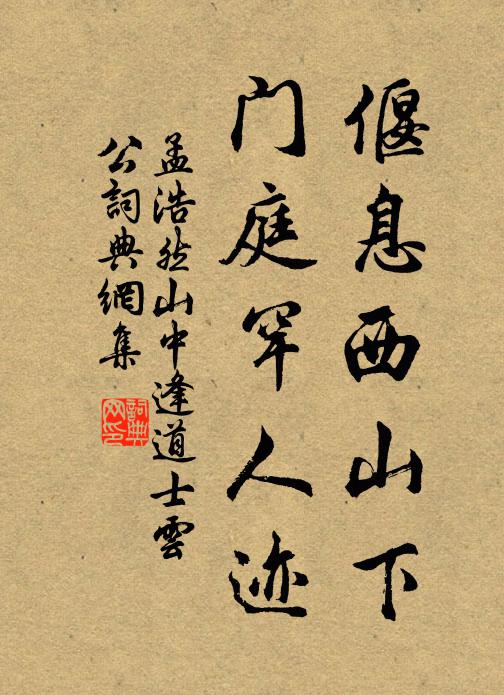 偃息西山下
门庭罕人迹
孟浩然山中逢道士雲
公詞典網集
詞典
网印